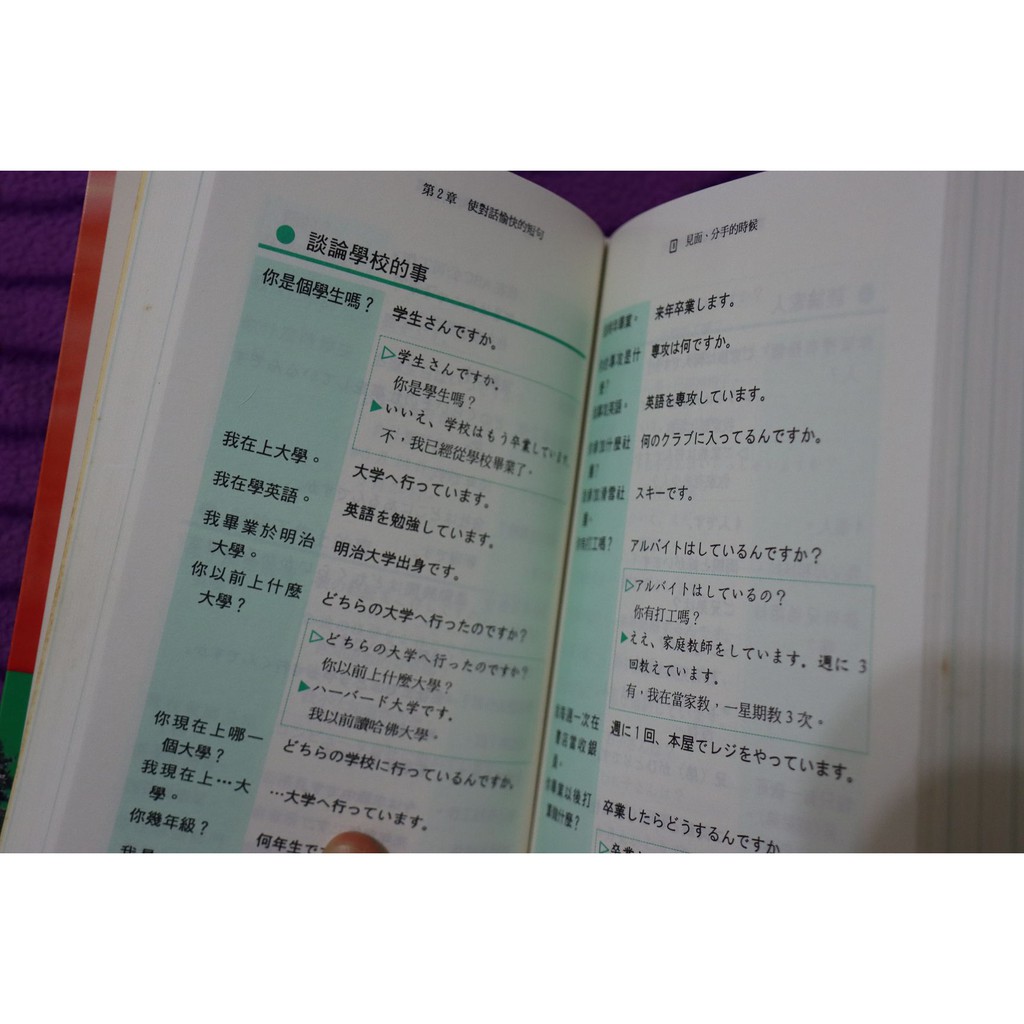 第2章 使對話愉快的短句
● 談論學校的事
你是個學生嗎？ 学生さんですか。
▷学生さんですか。
你是學生嗎？
▶いいえ、学校はもう卒業しています。
不，我已經從學校畢業了。
我在上大學。 大学へ行っています。
我在學英語。 英語を勉強しています。
我畢業於明治 明治大学出身です。
大學。
你以前上什麼 どちらの大学へ行ったのですか？
大學？
▷どちらの大学へ行ったのですか？
你以前上什麼大學？
▶ハーバード大学です。
我以前讀哈佛大學。
你現在上哪一 どちらの学校に行っているんですか。
個大學？
我現在上…大 …大学へ行っています。
學。
你幾年級？ 何年生で
見面、分手的時候
来年卒業します。
專攻是什 専攻は何ですか。
麼？
英語を専攻しています。
參加什麼社 何のクラブに入ってるんですか。
團？
參加滑雪社 スキーです。
團。
你有打工嗎？ アルバイトはしているんですか？
▷アルバイトはしているの？
你有打工嗎？
▶ええ、家庭教師をしています。週に 3
回教えています。
有，我在當家教，一星期教 3 次。
每週一次在 週に1回、本屋でレジをやっています。
書店當收銀
員。
畢業以後打 卒業したらどうするんですか
算做什麼？